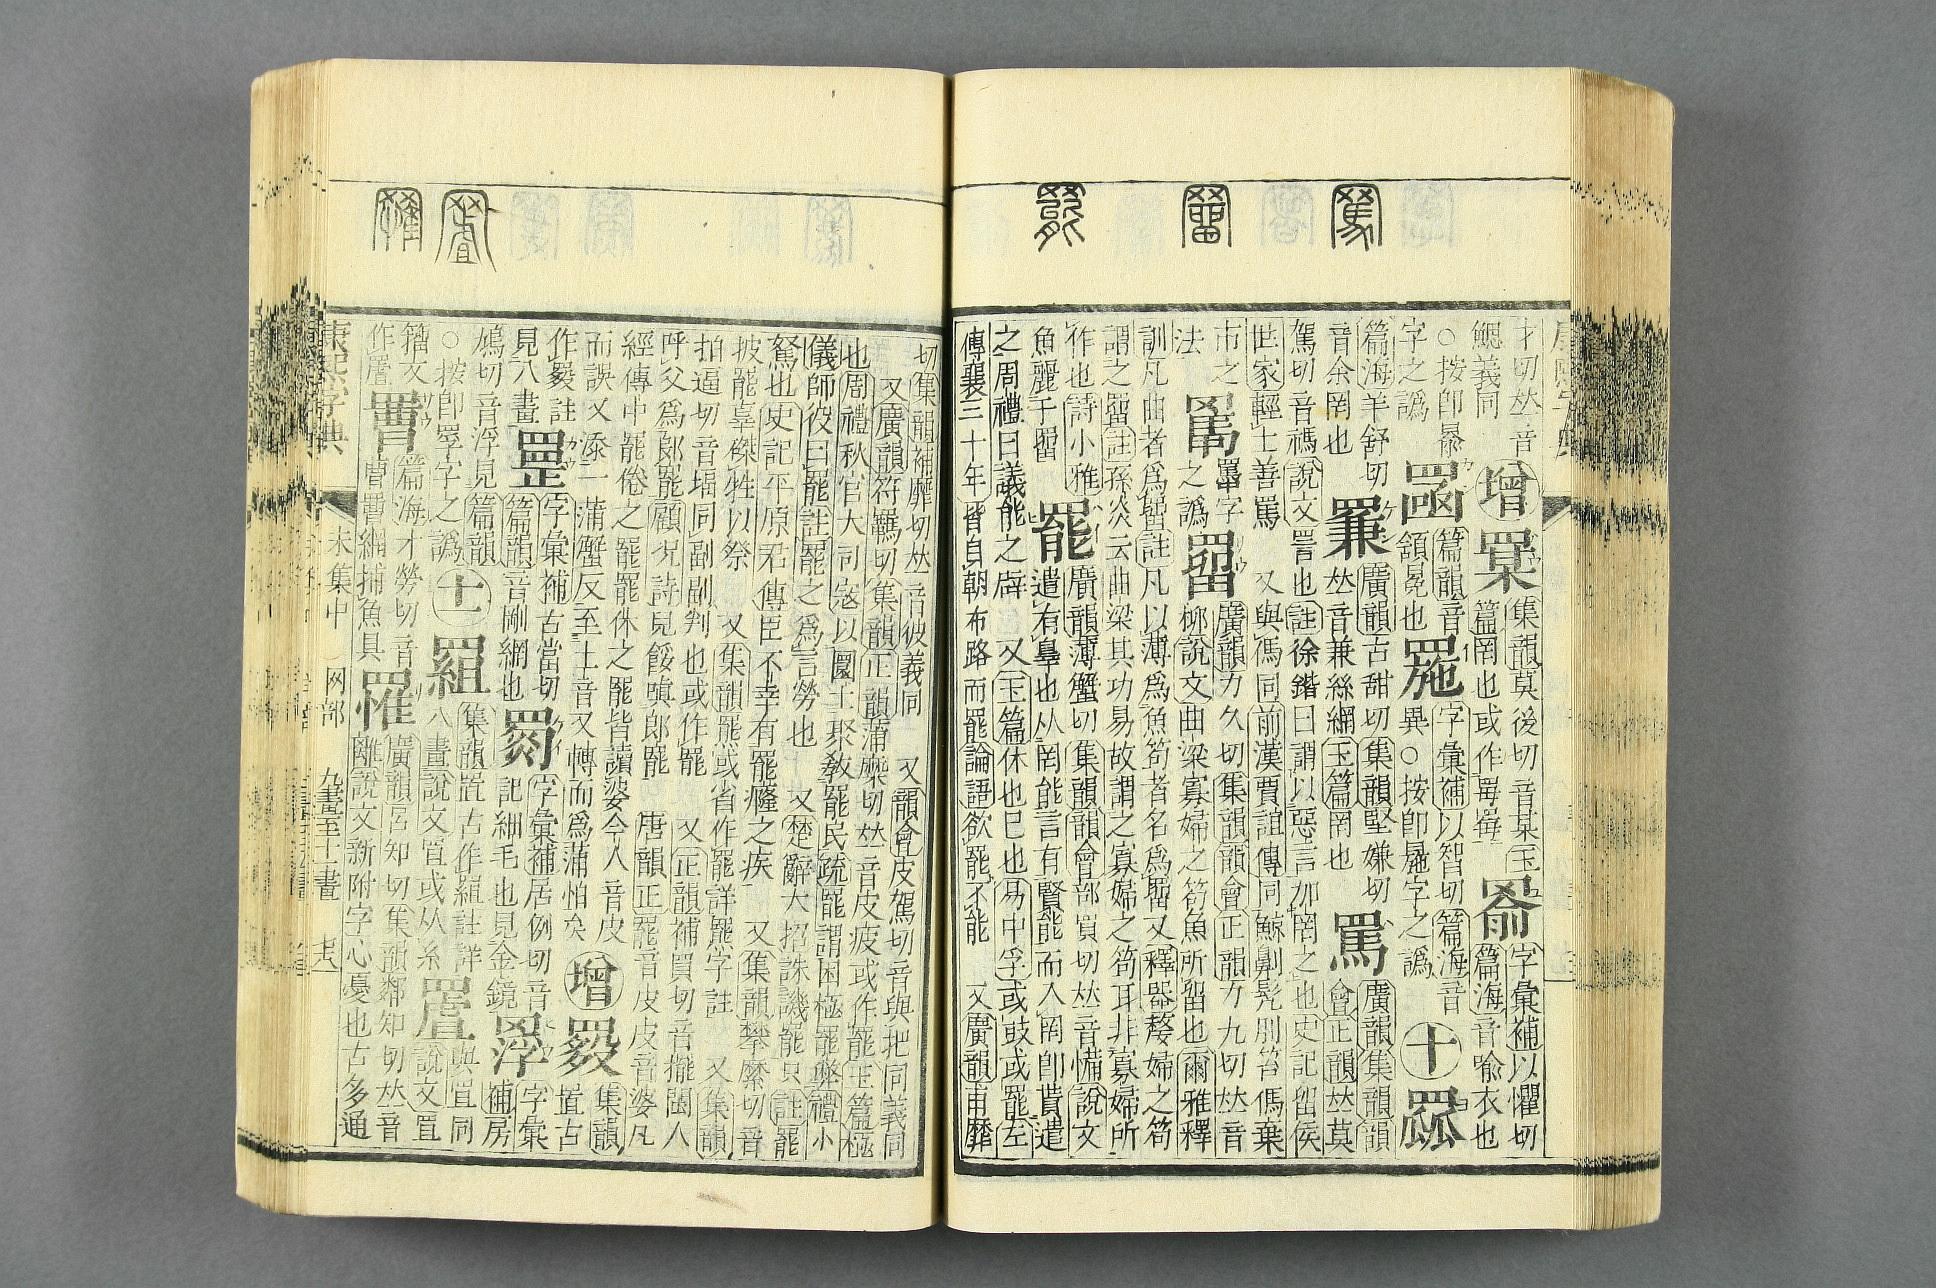 才切𠀤音
鰓義同
增
罞
集韻莫後切音某玉
篇罔也或作罞𦋡
字彙補以懼切
篇海音喻衣也
○按卽㬥
字之譌
篇韻音
額冕也
字彙補以智切篇海音
異○按卽𦋅字之譌
十
篇海羊舒切
音余罔也
廣韻古甜切集韻堅嫌切
𠀤音兼絲網玉篇罔也
罵
廣韻集韻韻
會正韻𠀤莫
駕切音禡說文詈也註徐鍇曰謂以惡言加罔之也史記留侯
世家輕士善罵 又與禡同前漢賈誼傳同黥劓髡刖笞傌棄
市之
法
罵
𦌾字
之譌
罶
廣韻力久切集韻韻會正韻力九切𠀤音
柳說文曲梁寡婦之笱魚所留也爾雅釋
訓凡曲者爲罶註凡以薄爲魚笱者名爲罶又釋器嫠婦之笱
謂之罶註孫炎云曲梁其功易故謂之寡婦之笱耳非寡婦所
作也詩小雅
魚麗于罶
罷
廣韻薄蟹切集韻韻會部買切𠀤音𢣠說文
遣有辠也从罔能言有賢能而入罔卽貰遣
之周禮曰議能之辟 又玉篇休也巳也易中孚或鼓或罷左
傳襄三十年皆自朝布路而罷論語欲罷不能 又廣韻甫靡
切集韻補靡切𠀤音彼義同 又韻會皮駕切音與把同義同
又廣韻符羈切集韻正韻蒲糜切𠀤音皮疲或作罷玉篇極
也周禮秋官大司寇以圜土聚敎罷民疏罷謂困極罷弊禮小
儀師役曰罷註罷之爲言勞也 又楚辭大招誅譏罷只註罷
駑也史記平原君傳臣不幸有罷癃之疾 又集韻攀糜切音
披罷辜磔牲以祭 又集韻罷或省作罷詳罷字註 又集韻
拍逼切音堛同副副判也或作罷 又正韻補買切音擺閩人
呼父爲郎罷顧況詩兒餒嗔郎罷 唐韻正罷音皮皮音婆凡
經傳中罷倦之罷罷休之罷皆讀婆今人音皮
而誤又添一蒲蟹反至士音又轉而爲蒲怕矣
增
集韻
置古
作𦋰註
見八畫
罡
字彙補古當切
篇韻音剛網也
字彙補居例切音
記細毛也見金鏡
字彙
補房
鳩切音浮見篇韻
○按卽罦字之譌
十一
集韻罝古作䍜註詳
八畫說文罝或从糸
與罝同
說文罝
籒文
作
篇海才勞切音
曹罾網捕魚具
罹
廣韻呂知切集韻鄰知切𠀤音
離說文新附字心憂也古多通
康熙字典
未集中
网部
九畫至十一畫